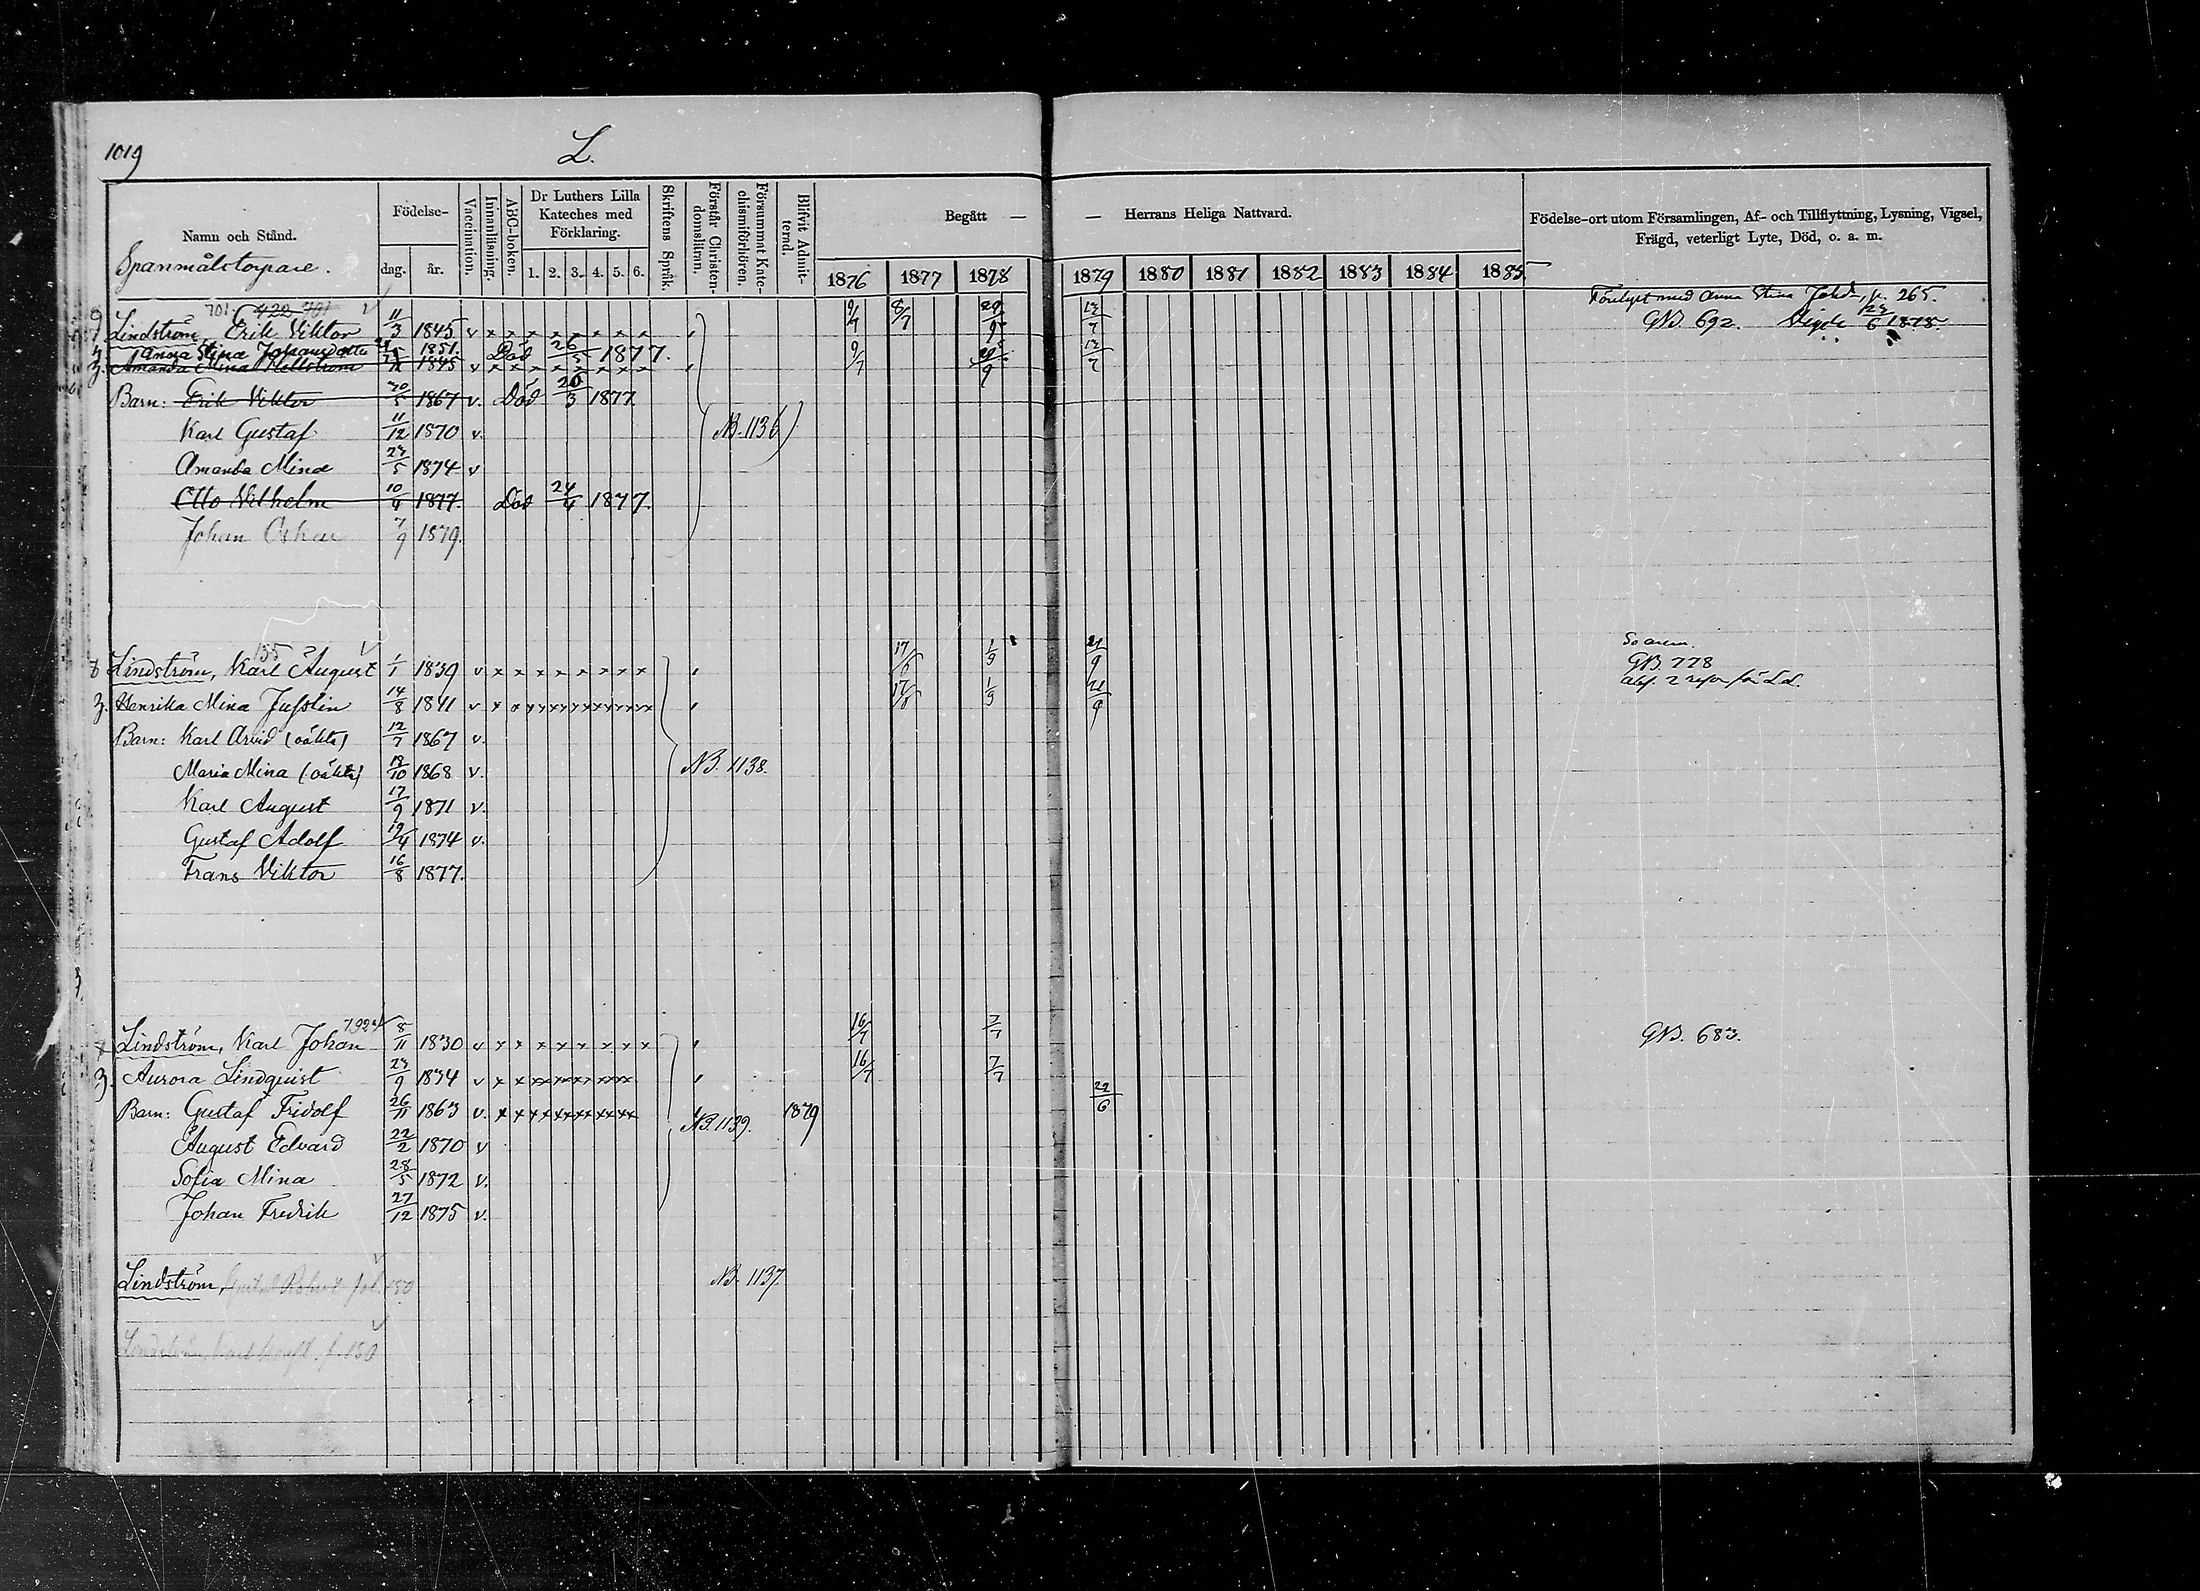 1019
L.
Namn och Stånd.
Födelse-
dag.
år.
Vaccination.
Innanläsning.
ABC-boken.
Dr Luthers Lilla Kateches med Förklaring.
1. 2. 3. 4. 5. 6.
Skriftens Språk.
Förstår Christendomsläran.
Försummat Katechismiförhören.
Blifvit Admitterad.
Begått — — Herrans Heliga Nattvard.
1876 1877 1878 1879 1880 1881 1882 1883 1884 1885
Födelse-ort utom Församlingen, Af- och Tillflyttning, Lysning, Vigsel,
Frägd, veterligt Lyte, Död, o. a. m.
Spanmålstorpare.
701. 420 701
Förelyst med Anna Stina Johd., p. 265.
Lindström, Erik Viktor 11/3 1845 v x x x x x x x x 9/7 8/7 13/7 GB. 692. Vigde 23/6 1878.
Anna Stina Johansdotter 1851. Död 26/5 1877. 9/7 13/7
Amanda Mina Hellström 1845 v x x x x x x x x
Barn: Erik Viktor 30/5 1867 v. Död 20/3 1877
Karl Gustaf 11/12 1870 v. NB. 1136
Amanda Mina 23/5 1874 v
Otto Vilhelm 10/4 1877. Död 24/4 1877.
Johan Oskar 7/9 1879.
155
8 Lindström, Karl August 1/1 1839 v x x x x x x x x 17/6 1/9 21/9 GB. 778
Henrika Mina Jusslin 14/8 1841 v 17/6 1/9 21/9
Barn: Karl Arvid (oäkta) 12/7 1867 v.
Maria Mina (oäkta) 18/10 1868 v. NB. 1138.
Karl August 17/9 1871 v.
Gustaf Adolf 19/4 1874 v.
Frans Viktor 16/8 1877.
792
Lindström, Karl Johan 8/11 1830 v x x x x x x x x 16/7 7/7 GB. 683.
Aurora Lindquist 23/9 1834 v 16/7 7/7
Barn: Gustaf Fridolf 26/11 1863 v. NB. 1139. 1879 22/6
August Edvard 22/2 1870 v
Sofia Mina 28/5 1872 v.
Johan Fredrik 27/12 1875 v.
Lindström, Gustaf Robert NB. 1137
Lindström, p. 150